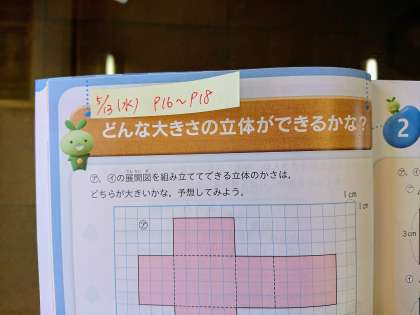 5/13(水) P16~P18
どんな大きさの立体ができるかな?
2
㋐, ㋑の展開図を組み立ててできる立体のかさは,
どちらが大きいかな。予想してみよう。
1cm
1cm
㋐
㋐
3cm
㋑